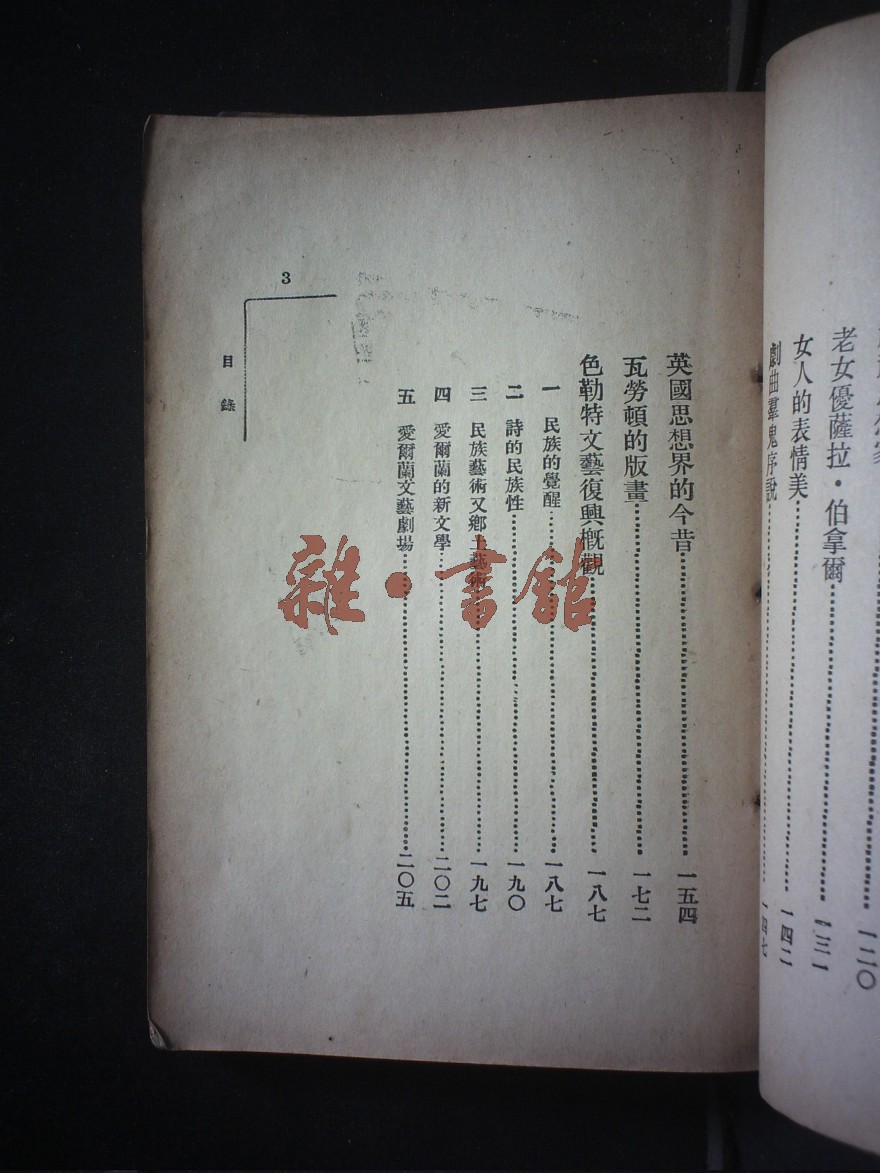 一二〇
老女優薩拉・伯拿爾……一三一
女人的表情美……一四二
劇曲羣鬼序說……一四七
英國思想界的今昔……一五四
瓦勞頓的版畫……一七二
色勒特文藝復興槪觀……一八七
一 民族的覺醒……一八七
二 詩的民族性……一九〇
三 民族藝術又鄉土藝術……一九七
四 愛爾蘭的新文學……二〇二
五 愛爾蘭文藝劇場……二〇五
目錄
3
雜・書館